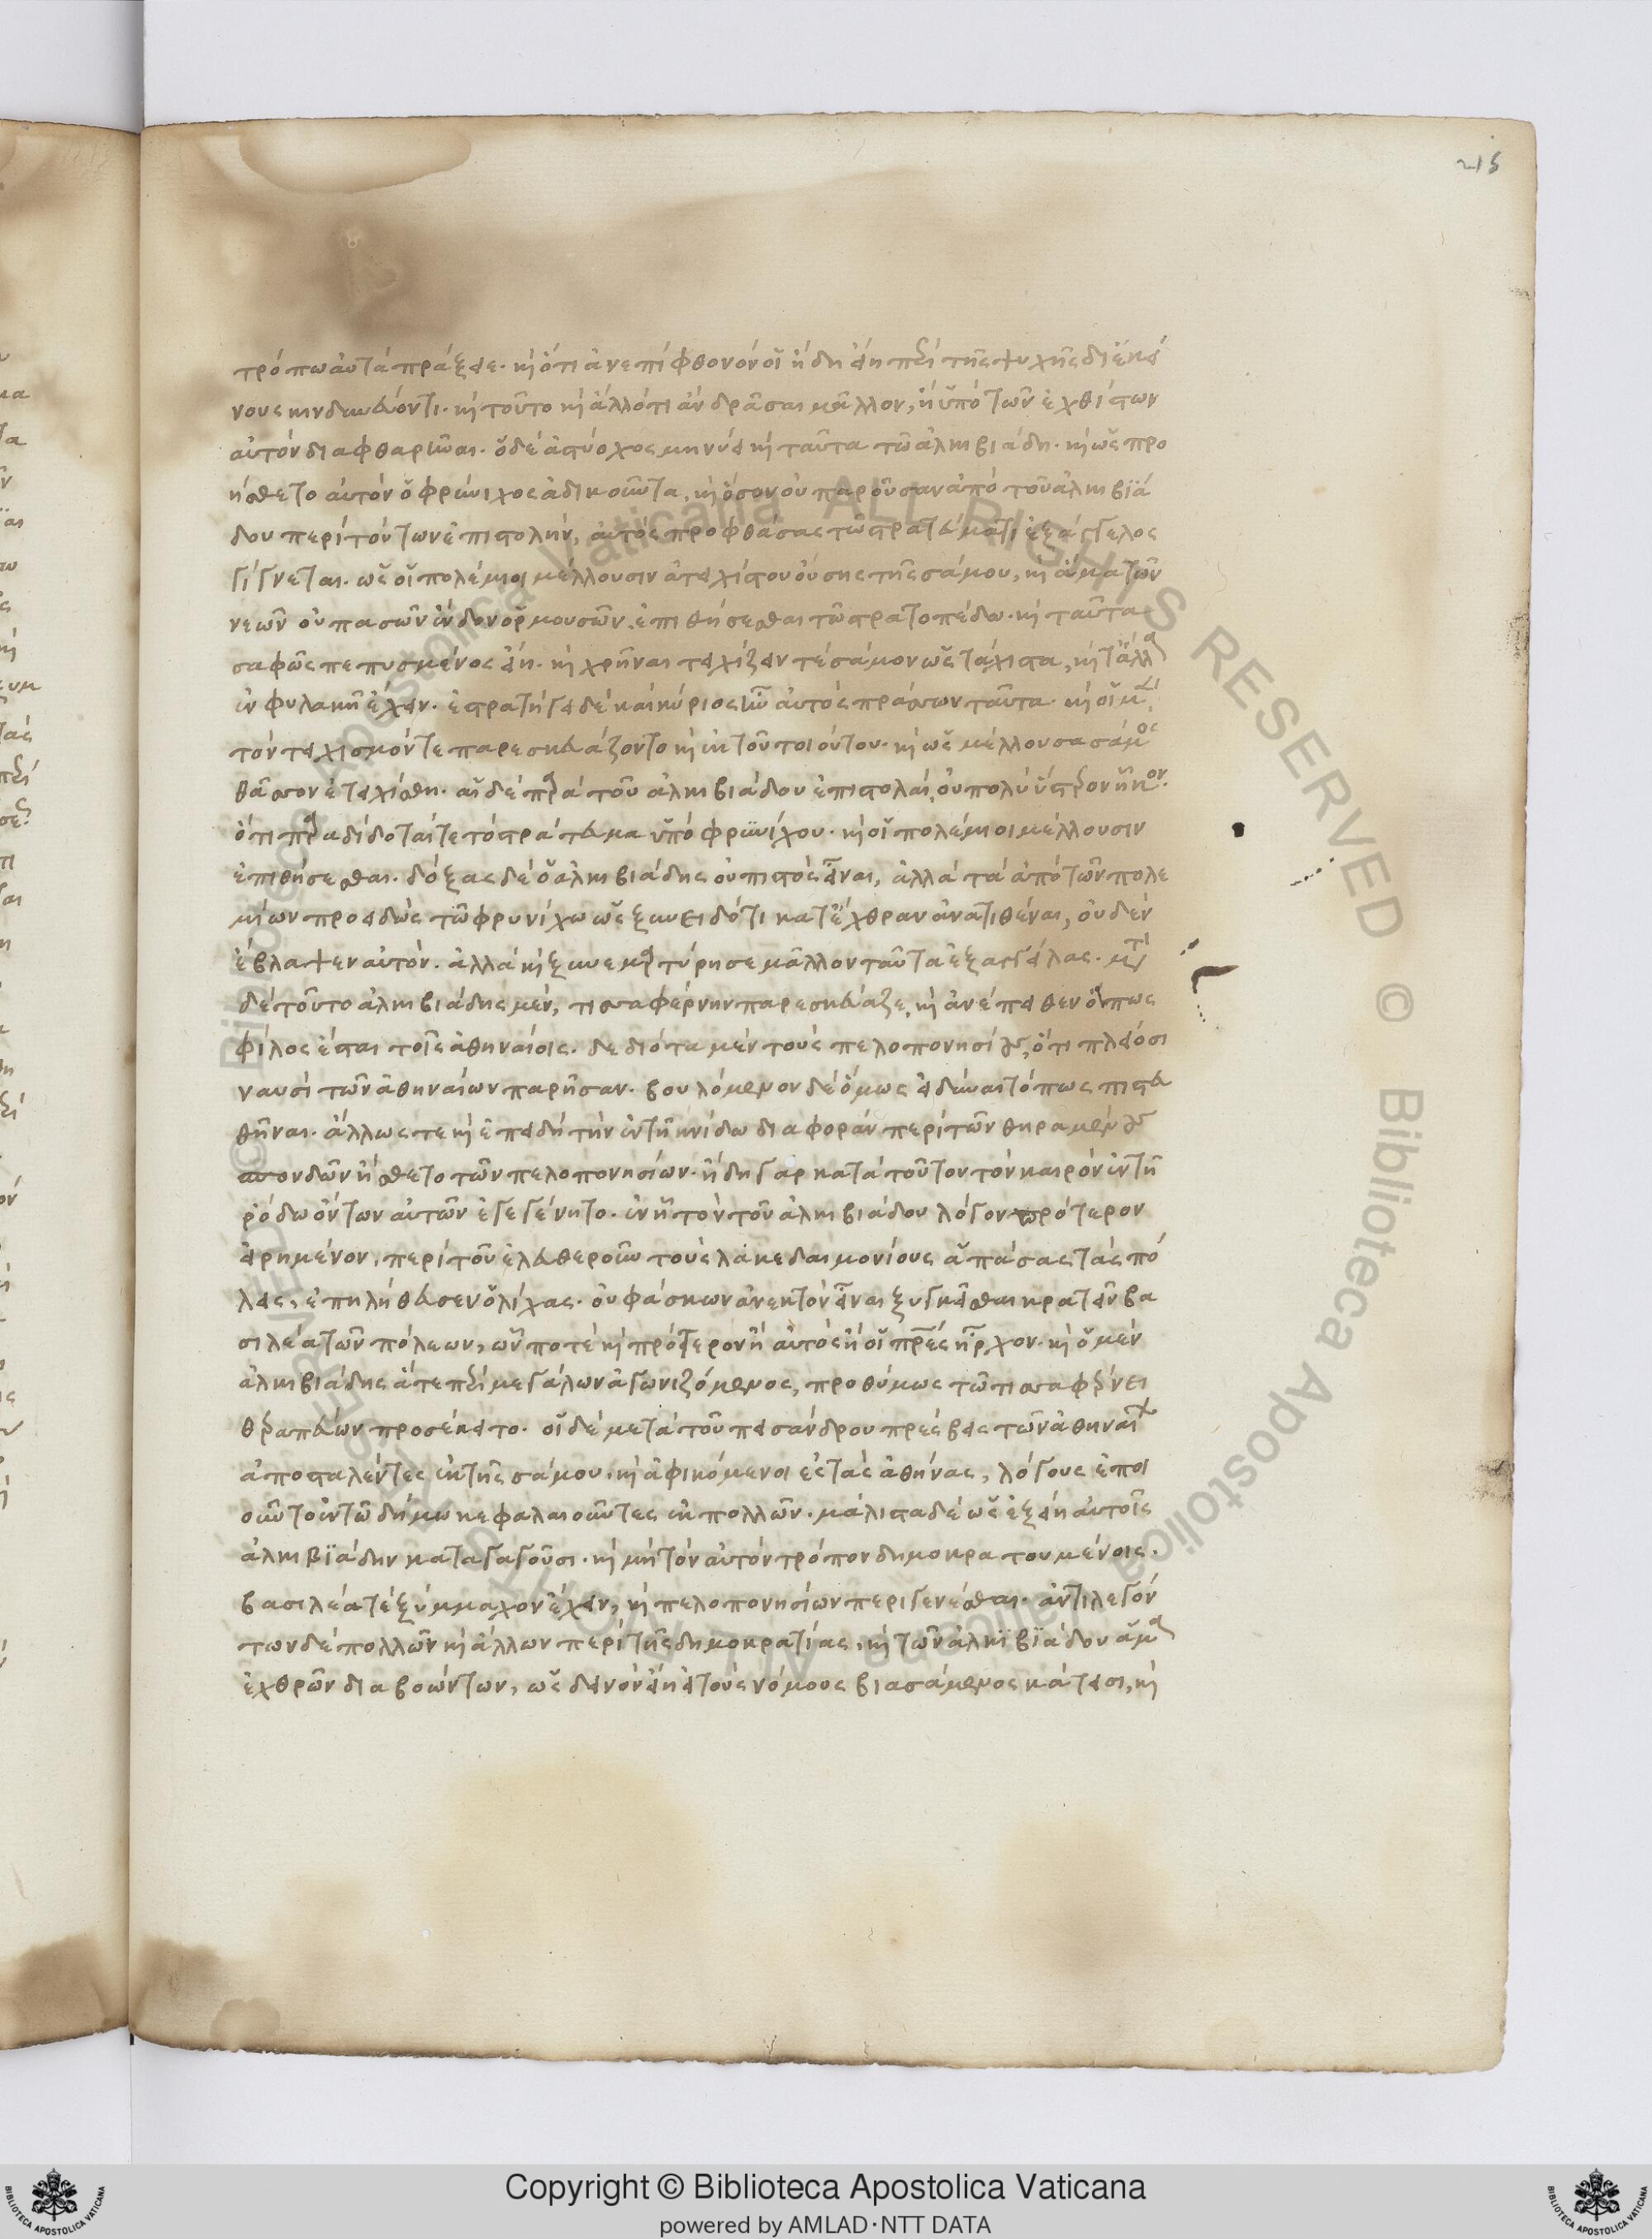 215
τρόπω αὐτὰ πράξειε. καὶ ὅτι ἀνεπίφθονόν οἱ ἤδη εἴη περὶ τῆς ψυχῆς δι' ἐκεί
νους κινδυνεύοντι. καὶ τοῦτο καὶ ἄλλο τι ἂν δρᾶσαι μᾶλλον, ἢ ὑπὸ τῶν ἐχθίστων
αὐτὸν διαφθαρῆναι. ὁ δὲ ἀστύοχος μηνύει καὶ ταῦτα τῶ ἀλκιβιάδη. καὶ ὡς προ
ήσθετο αὐτὸν ὁ φρύνιχος ἀδικοῦντα, καὶ ὅσον οὐ παροῦσαν ἀπὸ τοῦ ἀλκιβιά
δου περὶ τούτων ἐπιστολήν, αὐτὸς προφθάσας τῶ στρατεύματι ἐξάγγελος
γίγνεται. ὡς οἱ πολέμιοι μέλλουσιν ἀτειχίστου οὔσης τῆς σάμου, καὶ ἅμα τῶν
νεῶν οὐ πασῶν ἔνδον ὁρμουσῶν. ἐπιθήσεσθαι τῶ στρατοπέδω. καὶ ταῦτα
σαφῶς πεπυσμένος εἴη. καὶ χρῆναι τειχίζειν τὲ σάμον ὡς τάχιστα, καὶ τἄλλα
ἐν φυλακῆ ἔχειν. ἐστρατήγει δὲ καὶ κύριος ἦν αὐτὸς πράσσων ταῦτα. καὶ οἱ μὲν
τὸν τειχισμόν τε παρεσκευάζοντο καὶ ἐκ τοῦ τοιούτου. καὶ ὡς μέλλουσα σάμος
θᾶσσον ἐτειχίσθη. αἱ δὲ παρὰ τοῦ ἀλκιβιάδου ἐπιστολαὶ, οὐ πολὺ ὕστερον ἧκον.
ὅτι παραδίδοταί τε τὸ στράτευμα ὑπὸ φρυνίχου. καὶ οἱ πολέμιοι μέλλουσιν
ἐπιθήσεσθαι. δόξας δὲ ὁ ἀλκιβιάδης οὐ πιστὸς εἶναι, ἀλλὰ τὰ ἀπὸ τῶν πολε
μίων προειδὼς τῶ φρυνίχω ὡς ξυνειδότι κατ' ἔχθραν ἀνατιθέναι, οὐδὲν
ἔβλαψεν αὐτόν. ἀλλὰ καὶ ξυνεμαρτύρησε μᾶλλον ταῦτα ἐξαγγείλας. μετὰ
δὲ τοῦτο ἀλκιβιάδης μὲν, τισσαφέρνην παρεσκεύαζε, καὶ ἀνέπειθεν ὅπως
φίλος ἔσται τοῖς ἀθηναίοις. δεδιότα μὲν τοὺς πελοπονησίους, ὅτι πλείοσι
ναυσὶ τῶν ἀθηναίων παρῆσαν. βουλόμενον δὲ ὅμως εἰ δύναιτό πως πιστευ
θῆναι. ἄλλως τε καὶ ἐπειδὴ τὴν ἐν τῆ κνίδω διαφορὰν περὶ τῶν θηραμένους
σπονδῶν ἤσθετο τῶν πελοπονησίων. ἤδη γὰρ κατὰ τοῦτον τὸν καιρὸν ἐν τῆ
ῥόδω ὄντων αὐτῶν ἐγεγένητο. ἐν ἧ τὸν τοῦ ἀλκιβιάδου λόγον πρότερον
εἰρημένον, περὶ τοῦ ἐλευθεροῦν τοὺς λακεδαιμονίους ἁπάσας τὰς πό
λεις, ἐπηλήθευσεν ὁ λίχας. οὐ φάσκων ἀνεκτὸν εἶναι ξυγκεῖσθαι κρατεῖν βα
σιλέα τῶν πόλεων, ὧν ποτὲ καὶ πρότερον ἢ αὐτὸς ἢ οἱ πατέρες ἦρχον. καὶ ὁ μὲν
ἀλκιβιάδης ἅτε περὶ μεγάλων ἀγωνιζόμενος, προθύμως τῶ τισσαφέρνει
θεραπεύων προσέκειτο. οἱ δὲ μετὰ τοῦ πεισάνδρου πρέσβεις τῶν ἀθηναίων
ἀποσταλέντες ἐκ τῆς σάμου. καὶ ἀφικόμενοι ἐς τὰς ἀθήνας, λόγους ἐποι
οῦντο ἐν τῶ δήμω κεφαλαιοῦντες ἐκ πολλῶν. μάλιστα δὲ ὡς ἐξείη αὐτοῖς
ἀλκιβιάδην καταγαγοῦσι. καὶ μὴ τὸν αὐτὸν τρόπον δημοκρατουμένοις.
βασιλέα τὲ ξύμμαχον ἔχειν, καὶ πελοπονησίων περιγενέσθαι. ἀντιλεγόν
των δὲ πολλῶν καὶ ἄλλων περὶ τῆς δημοκρατίας, καὶ τῶν ἀλκιβιάδου ἅμα
ἐχθρῶν διαβοώντων, ὡς δεινὸν εἴη εἰ τοὺς νόμους βιασάμενος κάτεισι, καὶ
© Biblioteca Apostolica Vaticana ALL RIGHTS RESERVED © Biblioteca Apostolica Vaticana ALL RIGHTS RESERVED
Copyright © Biblioteca Apostolica Vaticana
powered by AMLAD·NTT DATA
BIBLIOTECA APOSTOLICA VATICANA
BIBLIOTECA APOSTOLICA VATICANA